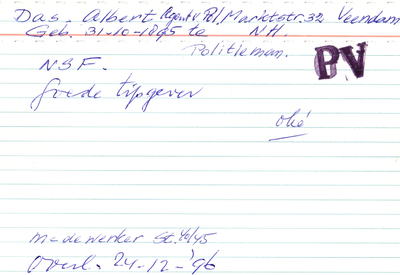 Das. Albert Agent v Pol. Marktstr. 32 Veendam
Geb. 31-10-1895 te N.H.
Politieman.
PV
NSF.
Goede tipgever
oké
medewerker St. 40/45
overl. 24-12-'96